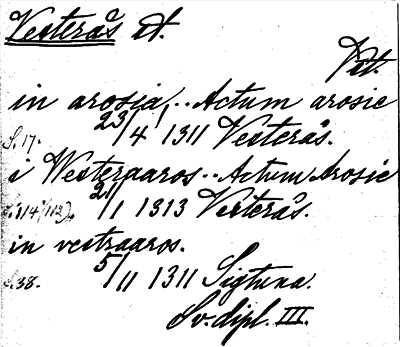 Vesterås st.
Vst.
in arosia,.. Actum arosie
S. 17. 23/4 1311 Vesterås.
i Westeraaros.. Actum Arosie
21/1 1313 Vesterås.
in vestraaros.
S. 38. 5/11 1311 Sigtuna.
Sv. dipl. III.